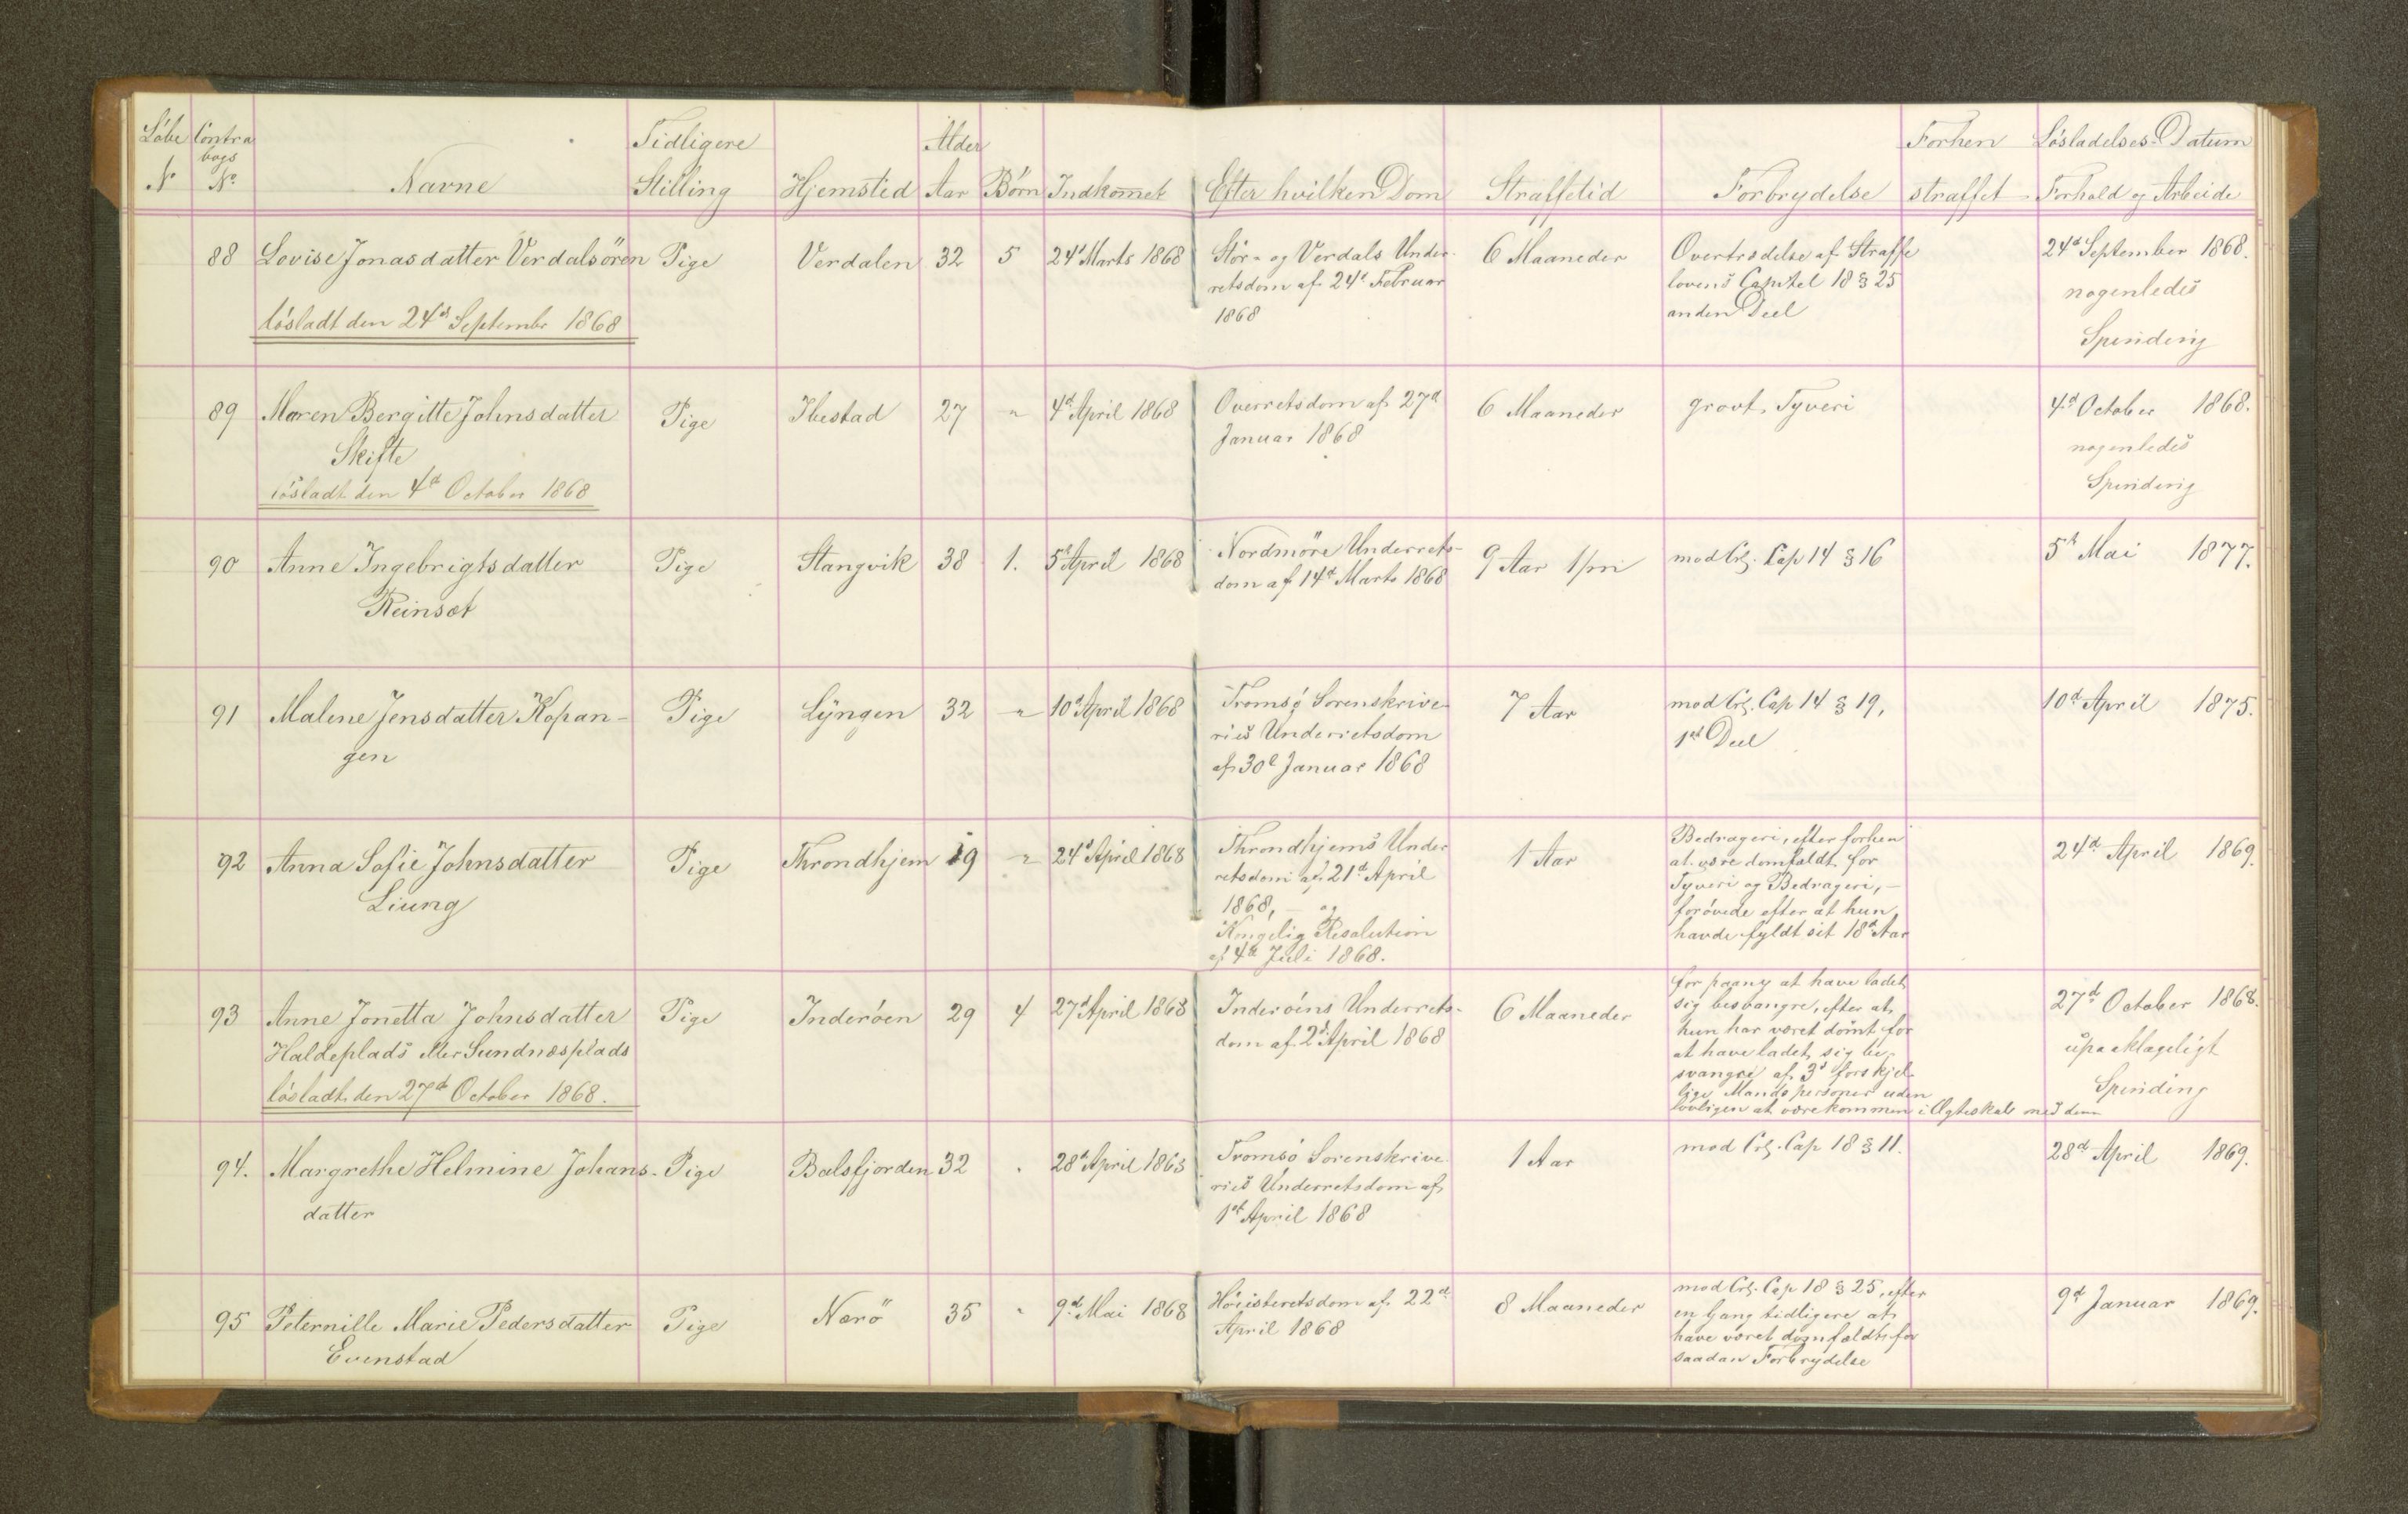 Løbe N° Contra bogs N° Navne Tidligere Stilling Hjemsted Alder Aar Børn Indkomet Efter hvilken Dom Straffetid Forbrydelse Forhen straffet Løsladelses-Datum Forhold og Arbeide
88 Lovise Jonasdatter Verdalsören Pige Verdalen 32 5 24d Marts 1868 Stör- og Verdals Under- 6 Maaneder Overtrædelse af Straffe 24d September 1868.
retsdom af 24d Februar lovens Capitel 18 § 25 nogenledes
løsladt den 24d Septembr 1868 1868 anden Deel Spinding
89 Maren Bergitte Johnsdatter Pige Ibestad 27 " 4d April 1868 Overretsdom af 27d 6 Maaneder grovt Tyveri 4d October 1868.
Skifte Januar 1868 nogenledes
løsladt den 4d October 1868 Spinding
90 Anne Ingebrigtsdatter Pige Stangvik 38 1. 5d April 1868 Nordmöre Underrets- 9 Aar 1/m mod Crl. Cap 14 § 16 5t Mai 1877.
Reinsæt dom af 14d Marts 1868
91 Malene Jensdatter Kopan- Pige Lyngen 32 " 10d April 1868 Tromsø Sorenskrive- 7 Aar mod Crl. Cap 14 § 19, 10d April 1875.
gen ries Underretsdom 1ste Deel
af 30d Januar 1868
92 Anna Sofie Johnsdatter Pige Throndhjem 19 " 24d April 1868 Throndhjems Under 1 Aar Bedrageri, efter forhen 24d April 1869.
Liung retsdom af 21d April at være domfældt for
1868, - og Tyveri og Bedrageri, -
Kongelig Resolution forøvede efter at hun
af 4de Juli 1868. havde fyldt sit 18d Aar
93 Anne Jonetta Johnsdatter Pige Inderøen 29 4 27d April 1868 Inderøens Underrets- 6 Maaneder for paany at have ladet 27d October 1868.
Haldeplads eller Sundnæsplads dom af 2d April 1868 sig besvangre, efter at upaaklageligt
løsladt den 27d October 1868. hun har været dömt for Spinding
at have ladet sig be-
svangre af 3d forskjel-
lige Mandspersoner uden
lovligen at være kommen i Ægteskab med dem
94. Margrethe Helmine Johans- Pige Balsfjorden 32 . 28d April 1868 Tromsö Sorenskrive- 1 Aar mod Crl. Cap 18 § 11. 28d April 1869.
datter ries Underretsdom af
1st April 1868
95 Peternille Marie Pedersdatter Pige Nærö 35 " 9d Mai 1868 Höiesteretsdom af 22d 8 Maaneder mod Crl. Cap 18 § 25, efter 9d Januar 1869.
Evenstad April 1868 en Gang tidligere at
have været domfældt for
saadan Forbrydelse